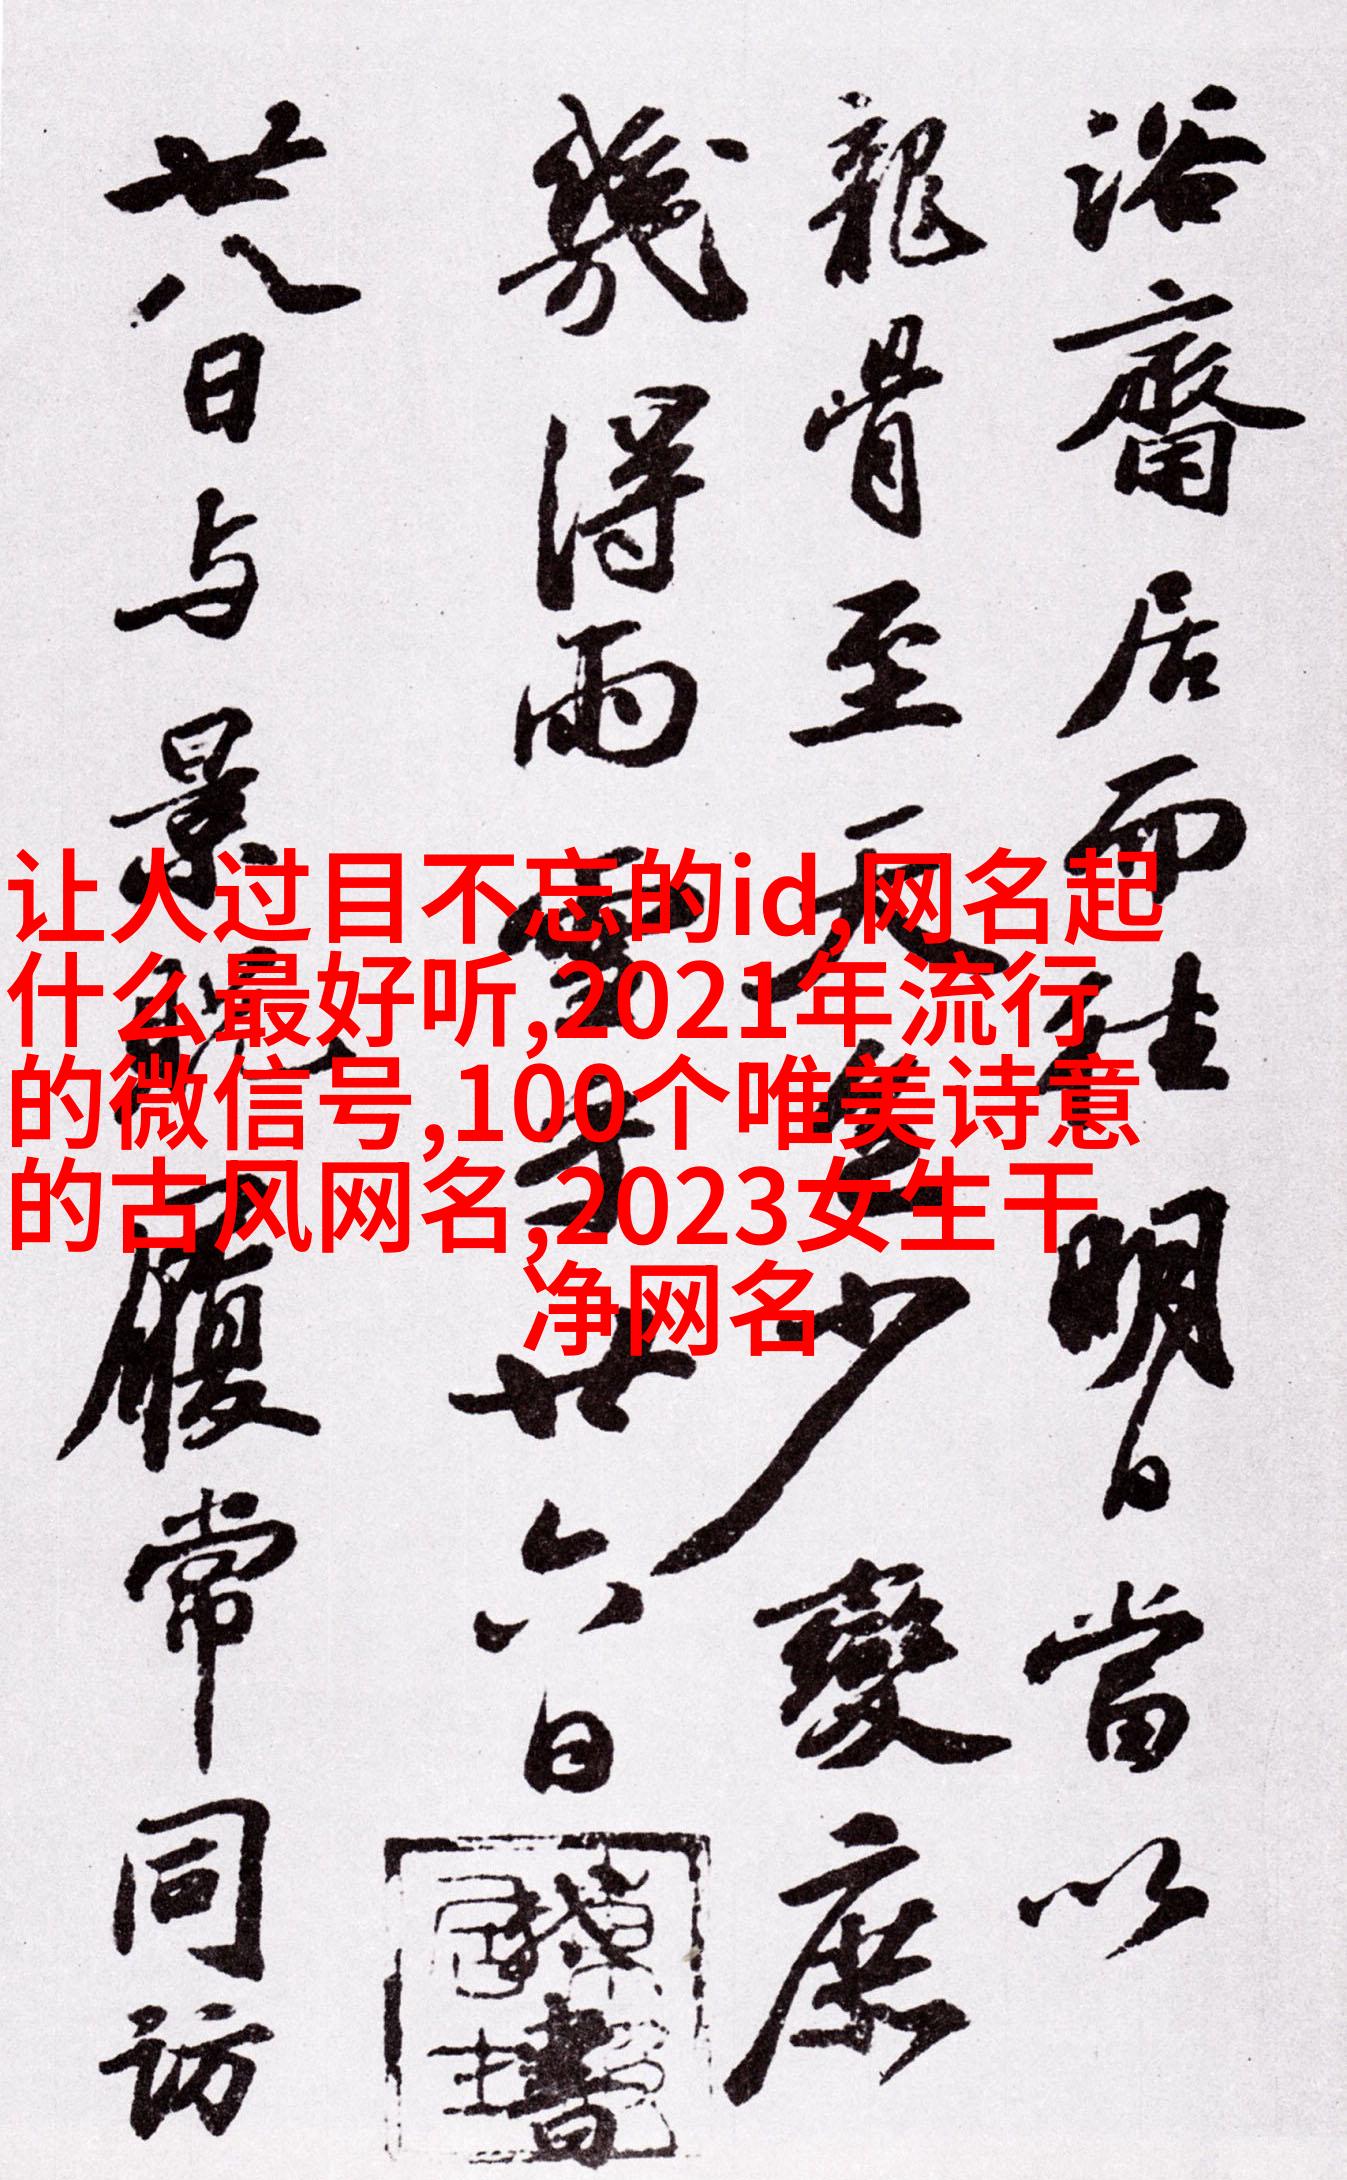 浴齋居而往明日當以
龍骨至天色少變庶
幾得雨雪乎廿六日書
廿八日与景貺履常同訪
让人过目不忘的id,网名起
什么最好听,2021年流行
的微信号,100个唯美诗意
的古风网名,2023女生干
净网名